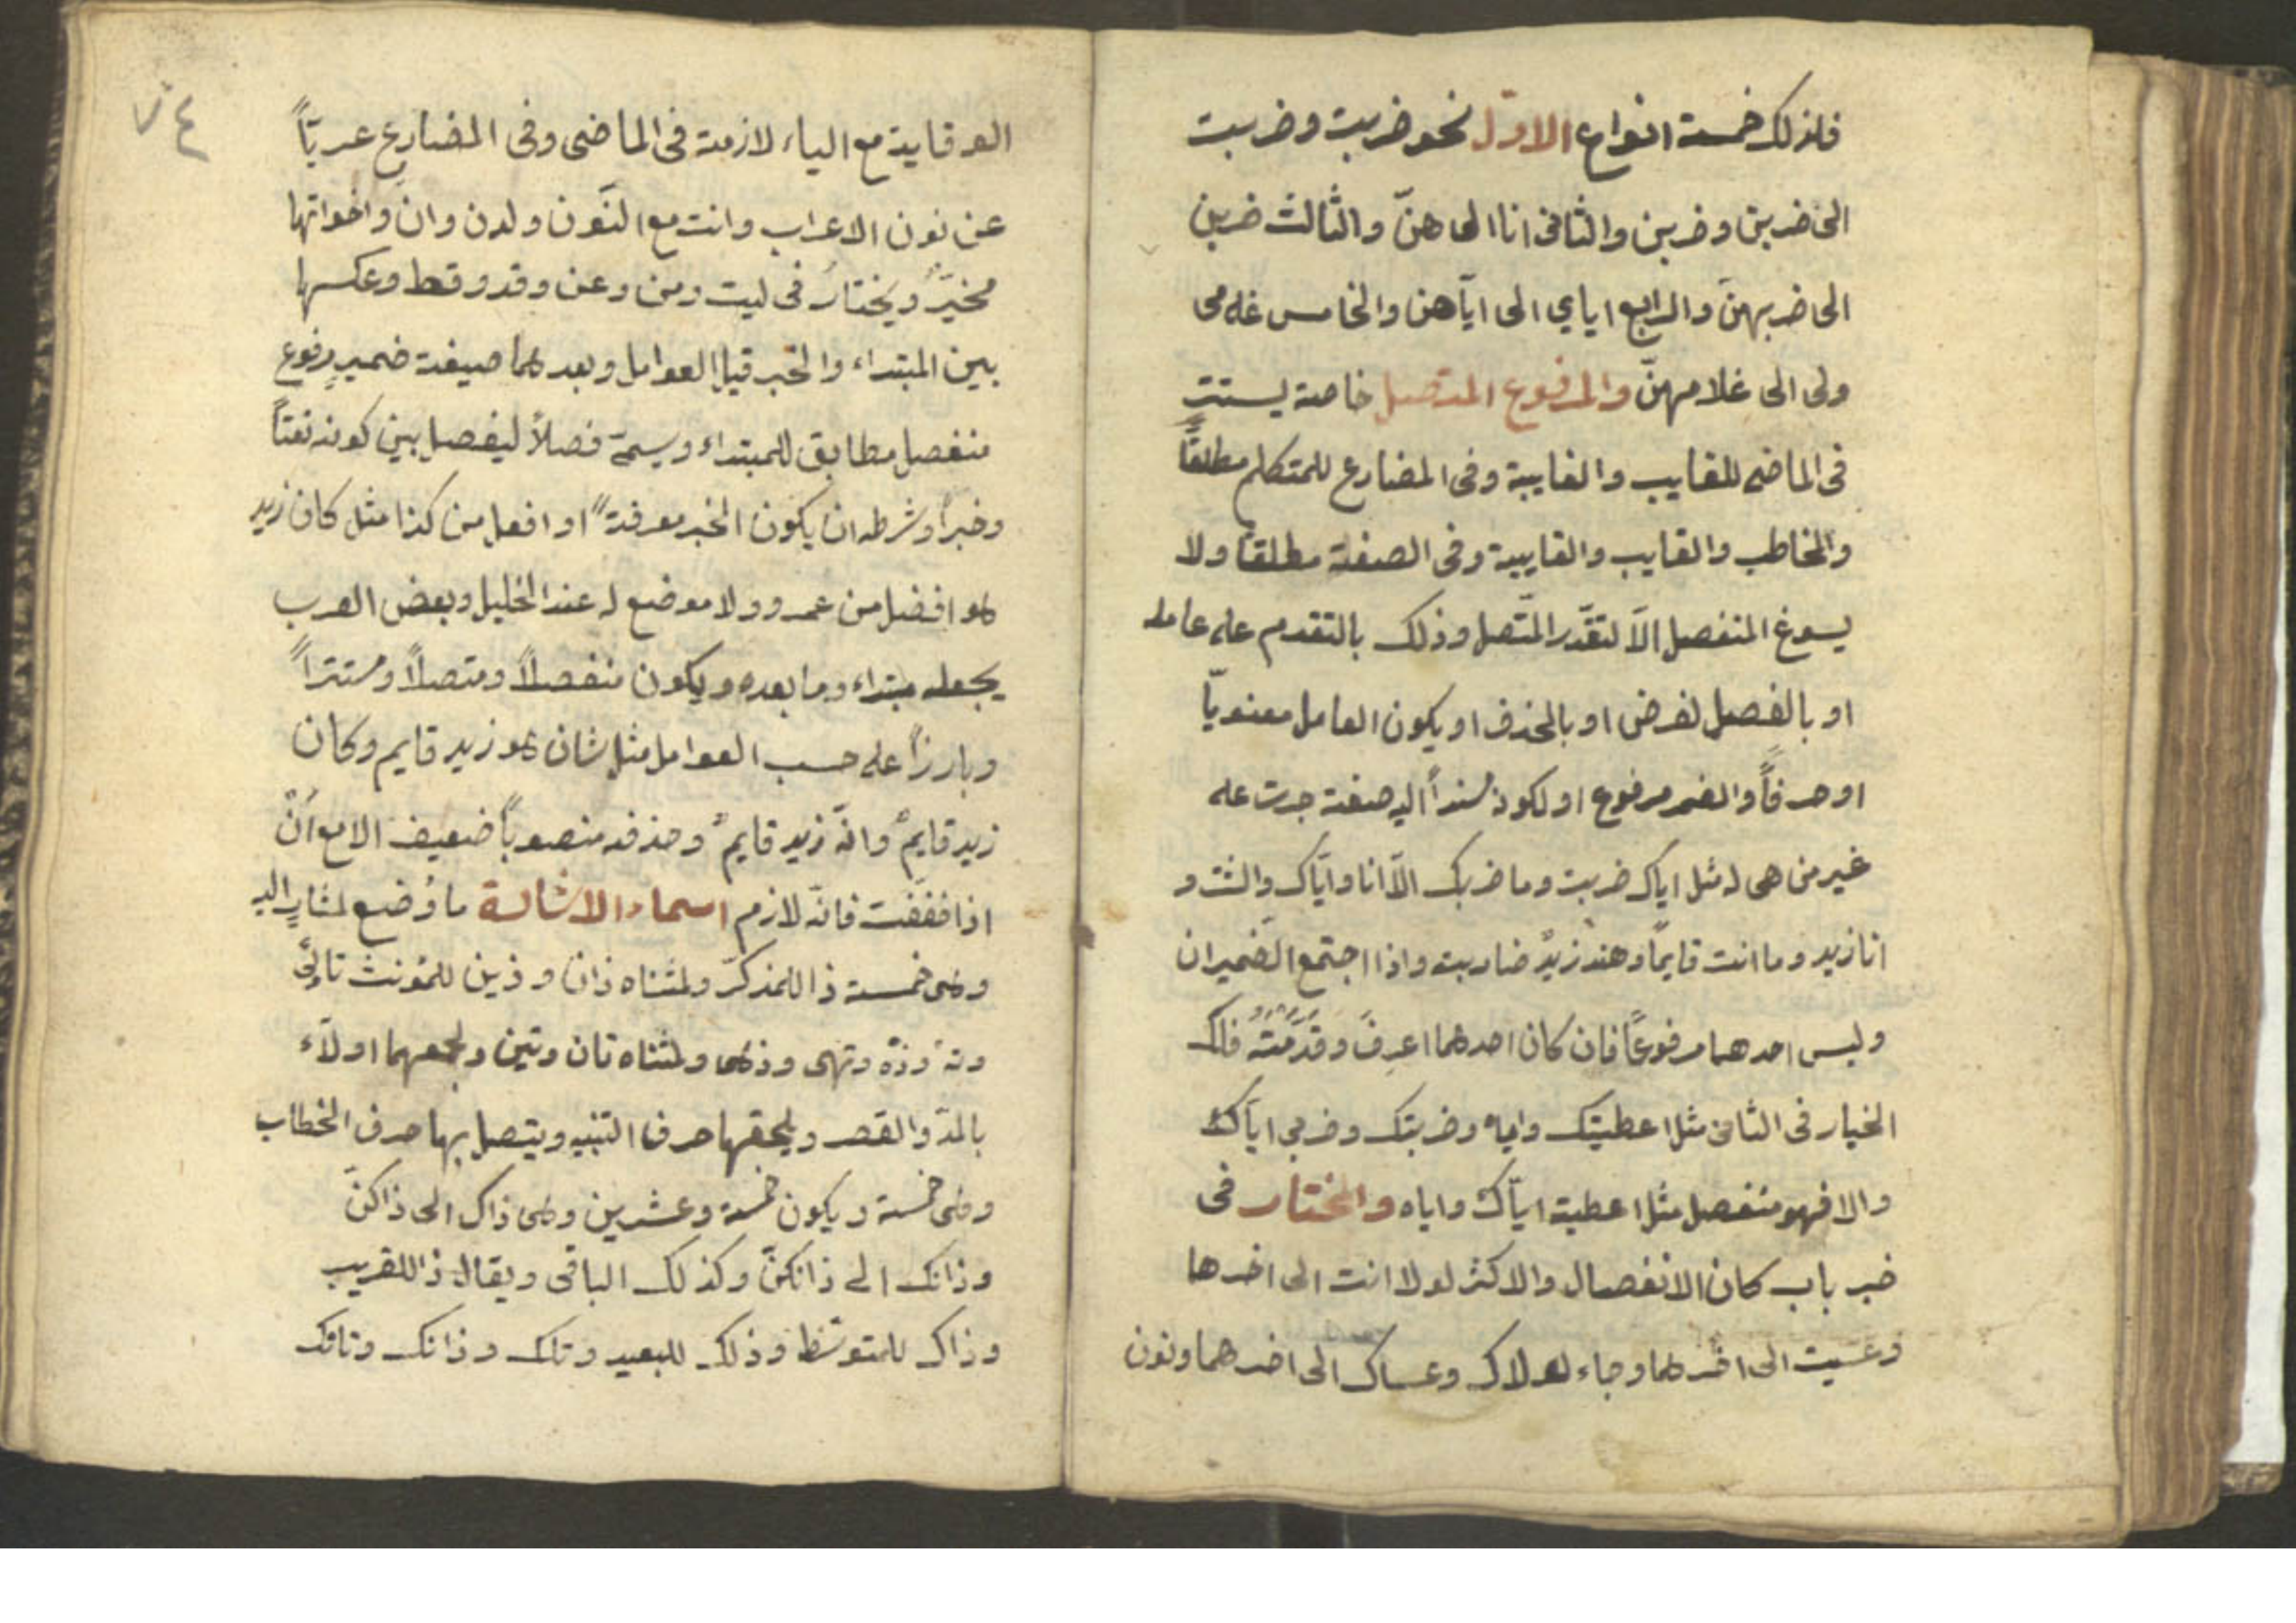 فلذلك خمسة انواع الاول نحو ضربت وضربت
الى ضربن وضربن والثانى انا الى هنّ والثالث ضربن
الى ضربهنّ والرابع اياي الى ايّاهن والخامس غلامى
ولى الى غلامهنّ والمرفوع المتصل خاصة يستتر
فى الماضى للغايب والغايبة وفى المضارع للمتكلم مطلقاً
والمخاطب والغايب والغايبة وفى الصفة مطلقاً ولا
يسوغ المنفصل الاّ لتقدّر المتّصل وذلك بالتقدم على عامله
او بالفصل لغرض او بالحذف او يكون العامل معنويّا
او حرفاً والضمر مرفوع او لكونه مسنداً اليه صفة جرت على
غير من هى له مثل اياك ضربت وما ضربك الاّ انا وايّاك والشر و
انا زيد وما انت قايماً وهند زيدٌ ضاربته واذا اجتمع الضميران
وليس احدهما مرفوعاً فان كان احدهما اعرفَ وقدّمته فلك
الخيار فى الثانى مثل اعطيتك واياه وضربتك وضربى ايّاك
والا فهو منفصل مثل اعطيته ايّاك واياه والمختار فى
خبر باب كان الانفصال والاكثر لولا انت الى اخرها
وعسيت الى اخرهما وجاء لولاك وعساك الى اخرهما ونون
٧٤
الوقاية مع الياء لازمة فى الماضى وفى المضارع عريّاً
عن نون الاعراب وانت مع النّون ولدن وان واخواتها
مخيّرٌ ويختار فى ليت ومن وعن وقد وقط وعكسها
بين المبتداء والخبر قبل العوامل وبعدهما صيغة ضميرٍ مرفوع
منفصل مطابق للمبتداء ويسمى فصلاً ليفصل بين كونه نعتاً
وخبراً وشرطه ان يكون الخبر معرفة او افعل من كذا مثل كان زيد
هو افضل من عمرو ولا موضع له عند الخليل وبعض العرب
يجعله مبتداء وما بعده ويكون منفصلاً ومتصلاً ومستتراً
وبارزاً على حسب العوامل مثل شان هو زيد قايم وكان
زيد قايمٌ وانّه زيد قايمٌ وحذفه منصوباً ضعيف الا مع انْ
اذا خففت فانّه لازم اسماء الاشارة ما وُضع لمشارٍ اليه
وهى خمسة ذا للمذكرّ ولمثناه ذان وذين للمؤنث تا وتى
وته وذه وتهى وذهى ولمثناه تان وتين ولجمعهما اولآء
بالمدّ والقصر ويلحقها حرف التنبيه ويتصل بها حرف الخطاب
وهى خمسة ويكون خمسة وعشرين وهى ذاك الى ذاكنّ
وذانك الى ذانكنّ وكذلك الباقى ويقال ذا للقريب
وذاك للمتوسّط وذلك للبعيد وتلك وذانك وتانك